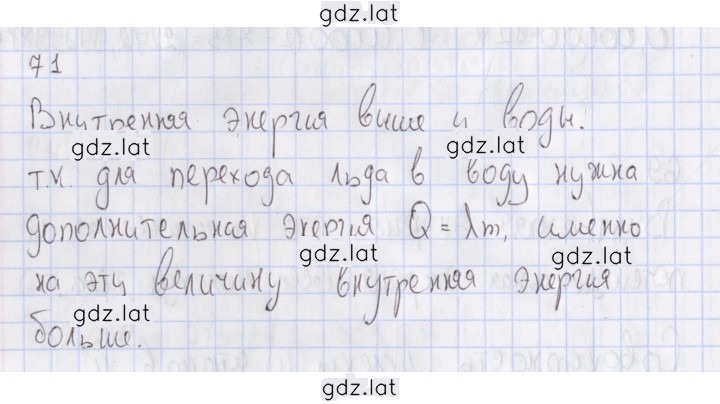 gdz.lat
71
Внутренняя энергия выше и воды.
gdz.lat
gdz.lat
т.к. для перехода льда в воду нужна
дополнительная энергия Q = λm, именно
gdz.lat
gdz.lat
на эту величину внутренняя энергия
gdz.lat
больше.
gdz.lat